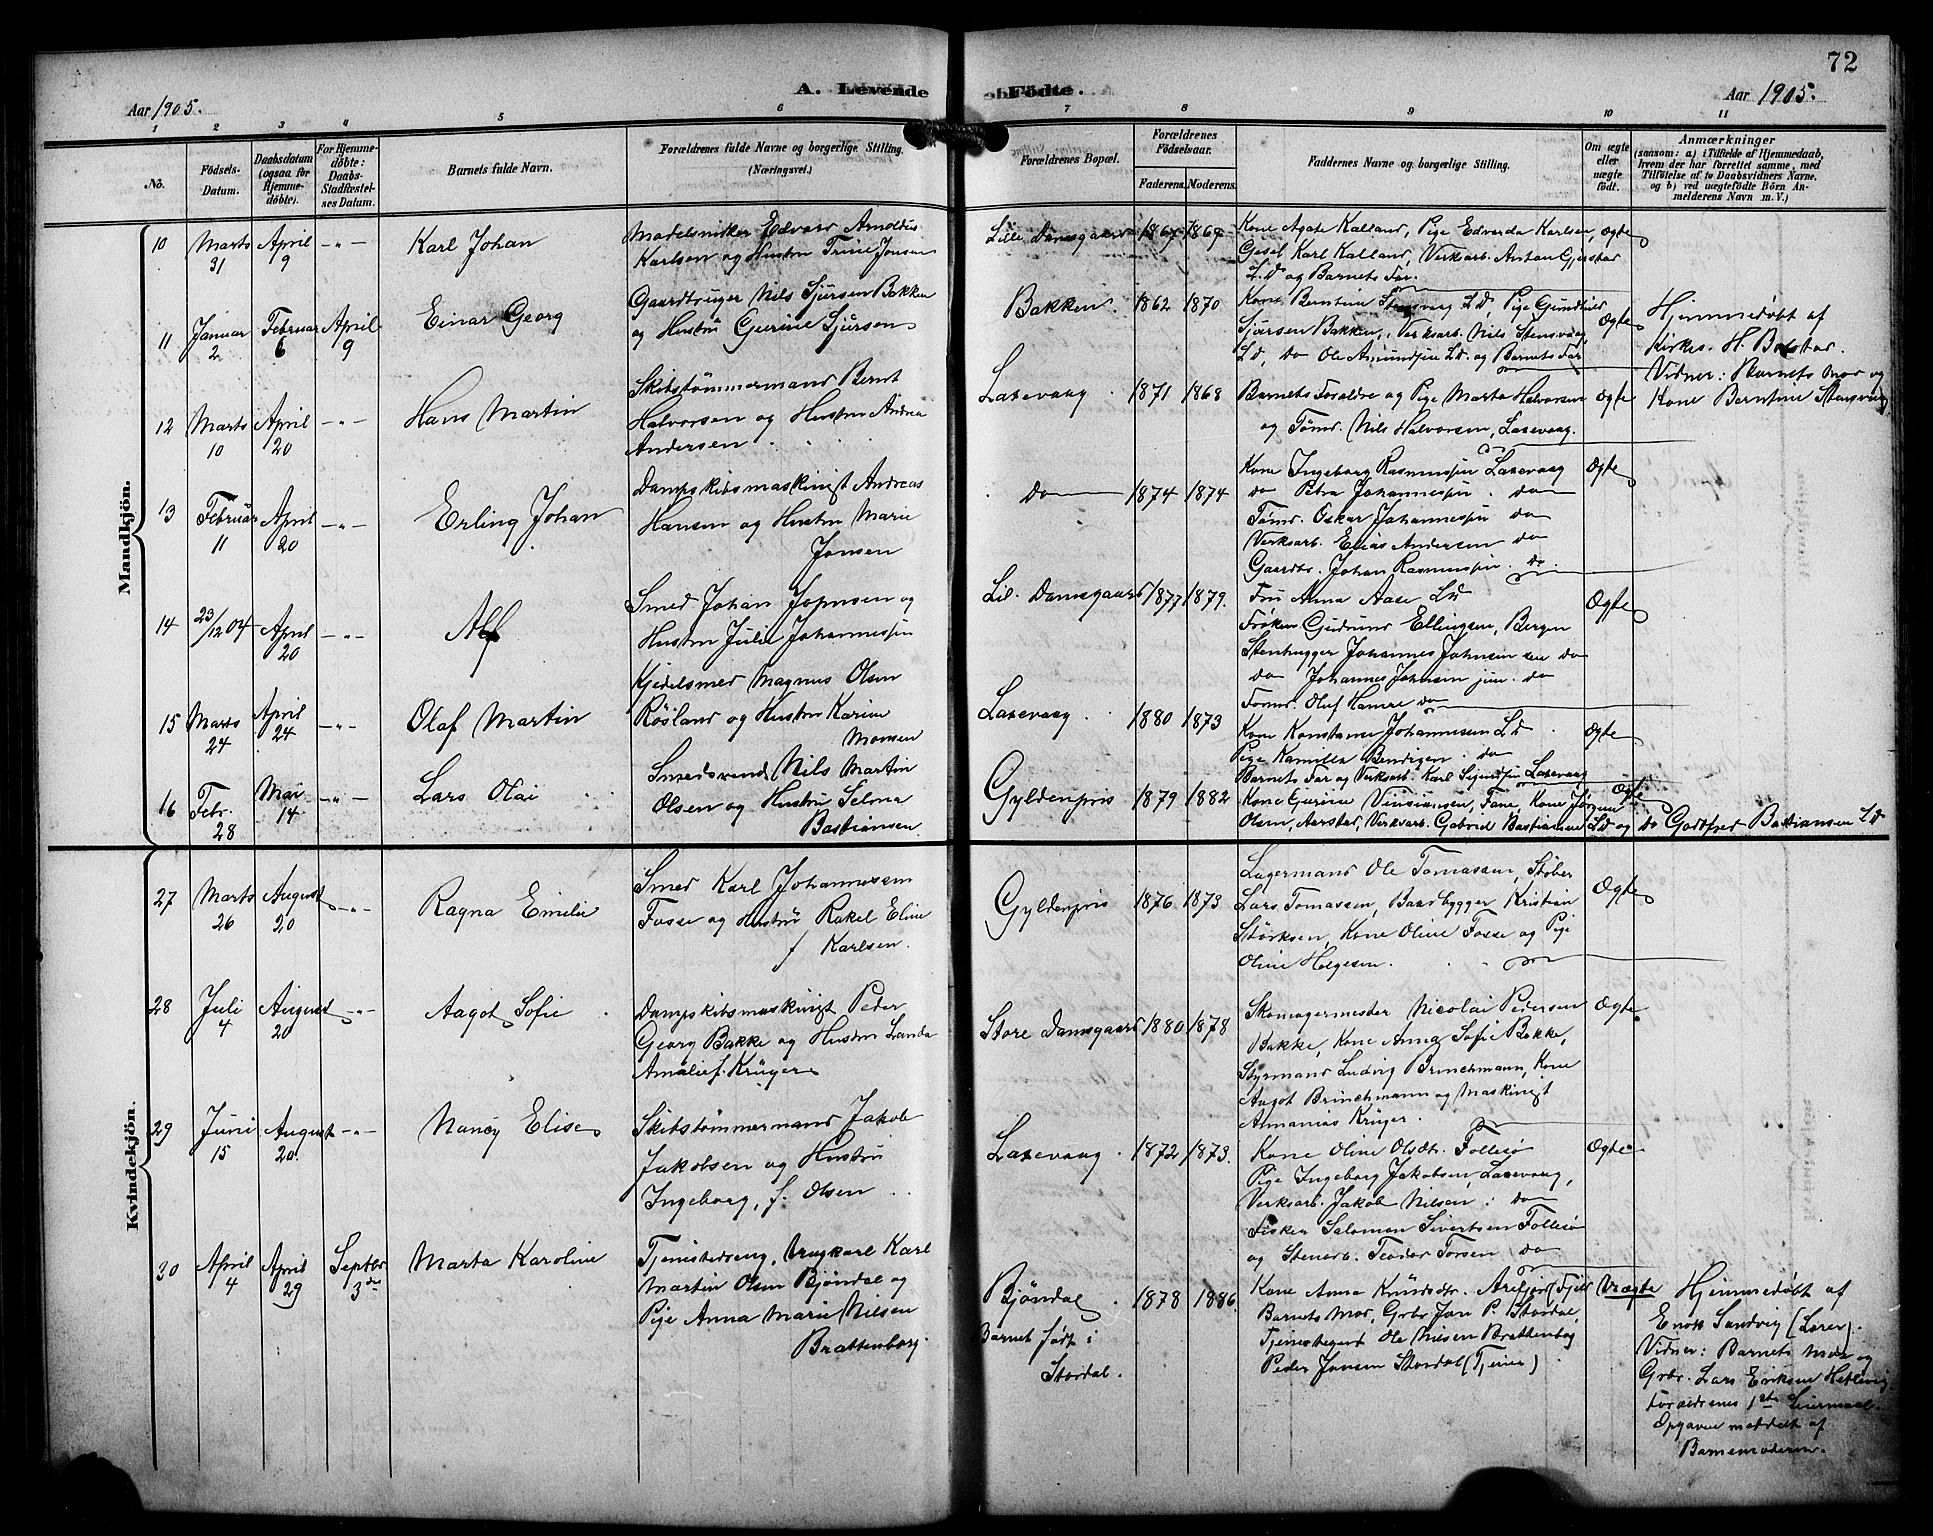 72
A. Levende Födte.
Aar 1905. Aar 1905.
1 2 3 4 5 6 7 8 9 10 11
No.
Födsels-
Datum.
Daabsdatum
(ogsaa for
Hjemme-
döbte).
For Hjemme-
döbte:
Daabs-
Stadfæstel-
ses Datum.
Barnets fulde Navn.
Forældrenes fulde Navne og borgerlige Stilling.
(Næringsvei.)
Forældrenes Bopæl.
Forældrenes
Födselsaar.
Faderens. Moderens.
Faddernes Navne og borgerlige Stilling.
Om ægte
eller
uægte
født.
Anmærkninger
(saasom: a) i Tilfælde af Hjemmedaab,
hvem der har forrettet samme, med
Tilføielse af to Daabsvidners Navne,
og b) ved uægtefödte Börn An-
melderens Navn m. V.)
Mandkjön.
10 Marts 31 April 9 -"- Karl Johan
Modelsnikker Edvard Arnoldus
Karlsen og Hustru Trine Jonsen
Lille Damsgaard 1867 1869
Kone Agate Kalland, Pige Edvarda Karlsen,
Gesel Karl Kalland, Verksarb. Anton Gjerstad
L.d og Barnets Far.
Ægte
11 Januar 2 Februar 6 April 9 Einar Georg
Gaardbruger Nils Sjursen Bakken
og Hustru Gurine Sjursen
Bakken. 1862 1870
Kone Berntine Stensvaag L.d, Pige Gundhild
Sjursen Bakken, Verksarb. Nils Stensvaag,
L.d, do Ole Amundsen L.d og Barnets Far
Ægte
Hjemmedøbt af
Kirkes. H. Bolstad.
Vidner: Barnets mor og
Kone Berntine Stensvaag
12 Marts 10 April 20 -"- Hans Martin
Skibstømmermand Bernt
Halvorsen og Hustru Andrea
Andersen
Laxevaag 1871 1868
Barnets Foreldre og Pige Marta Halvorsen
og Tømr. Nils Halvorsen, Laxevaag.
Ægte
13 Februar 11 April 20 -"- Erling Johan
Dampskibsmaskinist Andreas
Hansen og Hustru Marie
Jonsen
do 1874 1874
Kone Ingeborg Rasmussen Laxevaag
do Petra Johannessen do
Tømr. Oskar Johannessen do
Verksarb. Elias Andersen do
Gaardbr. Johan Rasmussen do
Ægte
14 23/12 04 April 20 -"- Alf
Smed Johan Johnsen og
Hustru Julie Johannessen
Lil. Damsgaard 1877 1879.
Fru Anna Aase L.d
Frøken Gudrund Ellingsen, Bergen
Stenhugger Johannes Johnsen sen do
do Johannes Johnsen jun. do
Tømr. Oluf Hamre do
Ægte
15 Marts 24 April 24 -"- Olaf Martin
Kjedelsmed Magnus Olsen
Røsland og Hustru Karine
Monsen
Laxevaag 1880 1873
Kone Konstanse Johannesen L.d
Pige Kamilla Bendigsen do
Barnets Far og Verksarb. Karl Laxevaag
Ægte
16 Febr. 28 Mai 14 -"- Lars Olai
Smedsvend Nils Martin
Olsen og Hustru Selma
Bastiansen
Gyldenpris 1879 1882
Kone Gurine Fane, Kone Jørgine
Olsen, Aarstad, Verksarb. Gabriel Bastiansen L.d og do Godtfred Bastiansen L.d
Ægte
Kvindekjön.
27 Marts 26 August 20 -"- Ragna Emilie
Smed Karl Johannessen
Fosse og Hustru Rakel Eline
f Karlsen.
Gyldenpris 1876 1873
Lagermand Ole Tomassen, Støber
Lars Tomassen, Baadbygger Kristian
Størksen, Kone Oline Fosse og Pige
Oline Helgesen.
Ægte
28 Juli 4 August 20 -"- Aagot Sofie
Dampskibsmaskinist Peder
Georg Bakke og Hustru Landa
Amalie f. Krüger
Store Damsgaard 1880 1878
Skomagermester Nicolai Pedersen
Bakke, Kone Anna Sofie Bakke,
Styrmand Ludvig Brinchmann, Kone
Aagot Brinchmann og Maskinist
Almanias Krüger.
Ægte
29 Juni 15 August 20. -"- Nancy Elise
Skibstømmermand Jakob
Jakobsen og Hustru
Ingeborg, f. Olsen
Laxevaag 1872 1873.
Kone Oline Olsdtr. Follesø
Pige Ingeborg Jakobsen, Laxevaag,
Verksarb. Jakob Nilsen do
Fisker Salomon Sivertsen Follesø
og Stenarb. Teodor Torsen do
Ægte
30 April 4 April 29 Septbr 3de Marta Karoline
Tjenestedreng, Ungkarl Karl
Martin Olsen Bjøndal og
Pige Anna Marie Nilsen
Brattenborg.
Bjøndal 1878 1886.
Barnet født i
Stordal.
Kone Anna Knudsdtr. Arefjord (Fjeld
Barnets Mor, Grbr Jon P. Stordal,
Tjenestegut Ole Nilsen Brattenborg
Peder Jonsen Stordal (Tjener)
Uægte
Hjemmedøbt af
Enok Sandvig (Lærer).
Vidner: Barnets Mor og
Grbr. Lars Eriksen Hetlevig
Foraldrenes 1ste Leiermaal.
Opgaven meddelt af
Barnemoderen.